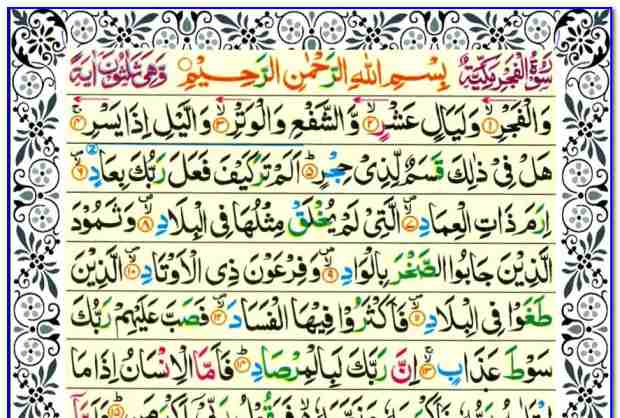 سُوْرَةُ الْفَجْرِ مَكِّيَّةٌ بِسْمِ اللهِ الرَّحْمٰنِ الرَّحِيْمِ وَهِيَ ثَلٰثُوْنَ اٰيَةً
وَالْفَجْرِ ۙ۝۱ وَلَيَالٍ عَشْرٍ ۙ۝۲ وَّالشَّفْعِ وَالْوَتْرِ ۙ۝۳ وَالَّيْلِ اِذَا يَسْرِ ۚ۝۴
هَلْ فِيْ ذٰلِكَ قَسَمٌ لِّذِيْ حِجْرٍ ؕ۝۵ اَلَمْ تَرَ كَيْفَ فَعَلَ رَبُّكَ بِعَادٍ ۪ۙ۝۶
اِرَمَ ذَاتِ الْعِمَادِ ۪ۙ۝۷ الَّتِيْ لَمْ يُخْلَقْ مِثْلُهَا فِي الْبِلَادِ ۪ۙ۝۸ وَثَمُوْدَ
الَّذِيْنَ جَابُوا الصَّخْرَ بِالْوَادِ ۪ۙ۝۹ وَفِرْعَوْنَ ذِي الْاَوْتَادِ ۪ۙ۝۱۰ الَّذِيْنَ
طَغَوْا فِي الْبِلَادِ ۪ۙ۝۱۱ فَاَكْثَرُوْا فِيْهَا الْفَسَادَ ۪ۙ۝۱۲ فَصَبَّ عَلَيْهِمْ رَبُّكَ
سَوْطَ عَذَابٍ ۚۙ۝۱۳ اِنَّ رَبَّكَ لَبِالْمِرْصَادِ ؕ۝۱۴ فَاَمَّا الْاِنْسَانُ اِذَا مَا